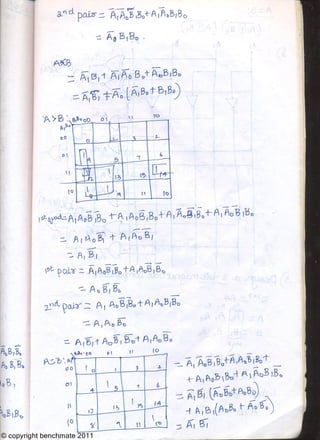 2nd pair = A̅₁A̅₀B̅₁B₀+A̅₁A̅₀B₁B₀
= A̅₀B₁B₀.
A<B
= A̅₁B₁ + A̅₁A̅₀B₀ + A̅₀B₁B₀
= A̅₁B₁ + A̅₀(A̅₁B₀+B₁B₀)
A>B:
00 01 11 10
00 0 1 3 2
01 1 4 5 7 6
11 1 12 1 13 15 1 14
10 1 8 1 9 11 10
1st quad = A₁A₀B̅₁B̅₀+A₁A₀B̅₁B₀+A₁A̅₀B̅₁B̅₀+A₁A̅₀B̅₁B₀
= A₁A₀B̅₁ + A₁A̅₀B̅₁
= A₁B̅₁
1st pair = A̅₁A₀B̅₁B̅₀+A₁A₀B̅₁B̅₀
= A₀B̅₁B̅₀
2nd pair = A₁A₀B̅₁B̅₀+A₁A₀B₁B̅₀
= A₁A₀B̅₀
= A₁B̅₁+A₀B̅₁B̅₀+A₁A₀B̅₀
A=B:
00 01 11 10
00 1 0 1 3 2
01 4 1 5 7 6
11 12 13 1 15 14
10 8 9 11 1 10
= A̅₁A̅₀B̅₁B̅₀+A̅₁A₀B̅₁B₀+
+ A₁A₀B₁B₀+A₁A̅₀B₁B̅₀
= A̅₁B̅₁(A̅₀B̅₀+A₀B₀)
+ A₁B₁(A₀B₀+A̅₀B̅₀)
= A̅₁B̅₁
© copyright benchmate 2011